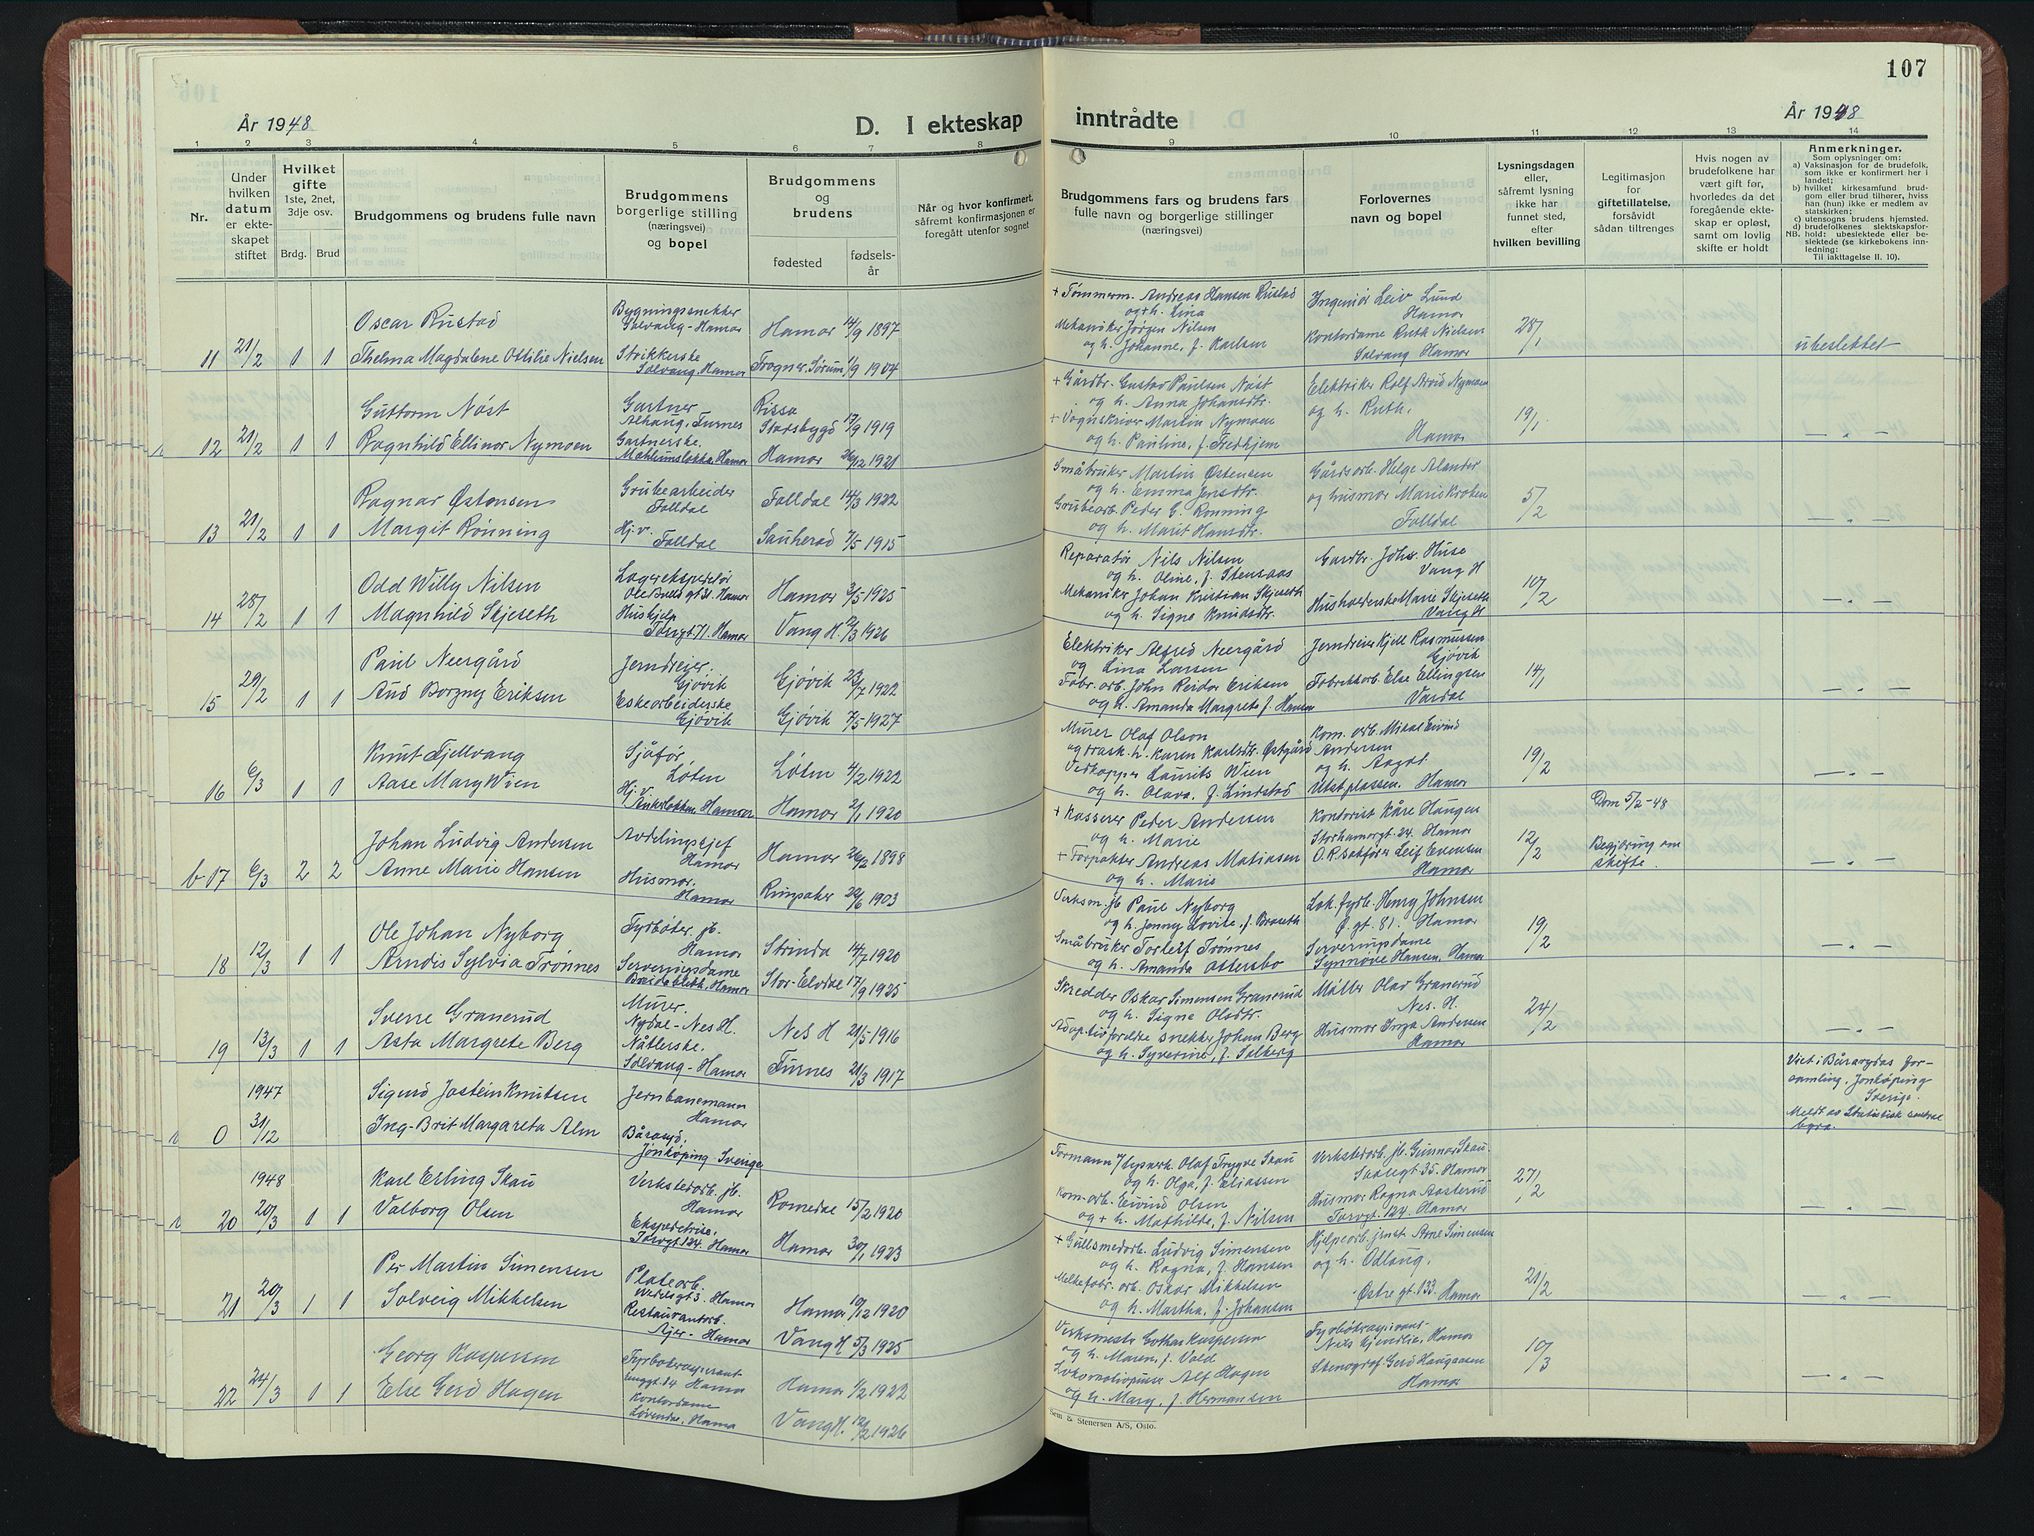 107
År 1948
D. I ekteskap
inntrådte
År 1948
1 2 3 4 5 6 7 8 9 10 11 12 13 14
Nr.
Under
hvilken
datum
er ekte-
skapet
stiftet
Hvilket
gifte
1ste, 2net,
3dje osv.
Brdg. Brud
Brudgommens og brudens fulle navn
Brudgommens
borgerlige stilling
(næringsvei)
og bopel
Brudgommens
og
brudens
fødested
fødsels-
år
Når og hvor konfirmert,
såfremt konfirmasjonen er
foregått utenfor sognet
Brudgommens fars og brudens fars
fulle navn og borgerlige stillinger
(næringsvei)
Forlovernes
navn og bopel
Lysningsdagen
eller,
såfremt lysning
ikke har
funnet sted,
efter
hvilken bevilling
Legitimasjon
for
giftetillatelse,
forsåvidt
sådan tiltrenges
Hvis nogen av
brudefolkene har
vært gift før,
hvorledes da det
foregående ekte-
skap er opløst,
samt om lovlig
skifte er holdt
Anmerkninger.
Som oplysninger om:
a) Vaksinasjon for de brudefolk,
som ikke er konfirmert her i
landet;
b) hvilket kirkesamfund brud-
gom eller brud tilhører, hviss
han (hun) ikke er medlem av
statskirken;
c) utensogns brudens hjemsted.
d) brudefolkenes slektskapsfor-
NB. hold: ubeslektede eller be-
slektede (se kirkebokens inn-
ledning:
Til iakttagelse II. 10).
11 21/2 1 1
Oscar Rustad
Thelma Magdalene Ottilie Nielsen
Bygningssnekker
Solvang - Hamar
Strikkerske
Solvang. Hamar
Hamar 14/9 1897
Frogner Sørum 1/9 1904
+ Tømmerm. Andreas Hansen Rustad
og + h. Lina
Mekaniker Jørgen Nilsen
og h. Johanne, f. Karlsen
Ingeniør Leiv Lund
Hamar
Kontordame Ruth Nielsen
Solvang Hamar
28/1
ubeslektet
12 21/2 1 1
Guttorm Nøst
Ragnhild Ellinor Nymoen
Gartner
Furnes
Gartnerske.
Hamar
Rissa
Stadsbygd 17/9 1919
Hamar 26/2 1921
+ Gårdbr. Gustav Paulsen Nøst
og h. Anna Johansdtr.
+ Vognskriver Martin Nymoen
og h. Pauline, f. Fredhjem
Elektriker Rolf Arvid Nymoen
og h. Ruth,
Hamar
19/1
— „ —
13 21/2 1 1
Ragnar Østensen
Margit Rønning
Grubearbeider
Folldal
Hj.v.
Folldal
Folldal 14/3 1922
Sauherad 7/5 1915
Småbruker Martin Østensen
og h. Emma Jensdtr.
Grubearb. Peder G. Rønning
og h. Marit Hansdtr.
Gårdsarb. Helge Alander
og husmor Marie Kroken
Folldal
5/2
— „ —
14 28/2 1 1
Odd Willy Nilsen
Magnhild Skjeseth
Lagerekspeditør
Ole Bulls gt 31. Hamar
Hushjelp
Torvgt. 71. Hamar
Hamar 3/5 1925
Vang H. 12/3 1926
Reparatør Nils Nilsen
og h. Oline, f. Stensaas
Mekaniker Johan Kristian Skjeseth
og h. Signe Knudsdtr.
Gardbr. Johs. Huse
Vang H
Husholderske Marie Skjeseth
Vang H
10/2
— „ —
15 29/2 1 1
Paul Neergård
Aud Borgny Eriksen
Jerndreier.
Gjøvik
Eskearbeiderske
Gjøvik
Gjøvik 23/7 1922
Gjøvik 7/5 1927
Elektriker Alfred Neergård
og Lina Larsen
Fabr. arb. John Reidar Eriksen
og h. Amanda Margrete f. Hansen
Jerndreier Kjell Rasmussen
Gjøvik
Fabrikkarb. Else Ellingsen
Vardal
14/1
— „ —
16 6/3 1 1
Knut Fjellvang
Aase Mary Wien
Sjåfør,
Løten
Hj.v.
Ankerløkken Hamar
Løten 4/2 1922
Hamar 2/1 1920
Murer Olaf Olson
og frask. h. Karen Karlsdtr. Østgård
Vedkapper Laurits Wien
og h. Olava, f. Lindstad
Kom. arb. Mikal Eivind
Andersen
og h. Aagot
Utstplassen. Hamar
19/2
— „ —
b-17 6/3 2 2
Johan Ludvig Andersen
Anne Marie Hansen
Avdelingssjef
Hamar
Husmor.
Hamar
Hamar 26/2 1898
Ringsaker 29/6 1903
+ Kasserer Peder Andersen
og h. Marie
+ Forpakter Andreas Matiasen
og h. Marie
Kontorist Kåre Haugen
Storhamargt. 24. Hamar
O.R.sakfører Leif Evensen
Hamar
12/2
Dom 5/2-48
Begjæring om
skifte.
— „ —
18 12/3 1 1
Ole Johan Nyborg
Arndis Sylvia Trønnes
Fyrbøter. jb.
Hamar
Serveringsdame
Hamar
Strinda 14/7 1920
Stor-Elvdal 17/9 1925
Verksm. jb Paul Nyborg
og h. Jenny Lovise, f. Braseth
Småbruker Torleif Trønnes
og h. Amanda Ottersbo
Lok.fyrb. Henry Johnsen
Ø. gt. 81. Hamar
Serveringsdame
Synnøve Hansen, Hamar
19/2
— „ —
19 13/3 1 1
Sverre Granerud
Asta Margrete Berg
Murer.
Nydal - Nes H.
Nåtlerske.
Solvang - Hamar
Nes H 21/5 1916
Furnes 21/3 1917
Skredder Oskar Simensen Granerud
og h. Signe Olsdtr.
Adoptivforeldre snekker Johan Berg
og h. Syverine, f. Solberg
Møller Olav Granerud
Nes. H.
Husmor Inga Andersen
Hamar
24/2
— „ —
0 1947 31/12
Sigurd Jostein Knutsen
Ing-Brit Margareta Alm
Jernbanemann
Hamar
Bårasyd,
Jønkøping - Sverige
Viet i Bårarydas for-
samling, Jonköping
Sverige.
Meldt av Statistisk sentral
byrå.
1948
20 20/3 1 1
Karl Erling Skau
Valborg Olsen
Verkstedarb. jb.
Hamar
Ekspeditrise,
Torvgt. 124. Hamar
Romedal 15/2 1920
Hamar 30/1 1923
Formann Olaf Trygve Skau
og h. Olga, f. Eliassen
Kom. arb. Eivind Olsen
og + h. Mathilde, f. Nilsen
Verkstedarb. jb. Gunnar Skau.
35. Hamar
Husmor Ragna Aasterud
Torvgt. 124. Hamar
27/2
— „ —
21 20/3 1 1
Per Martin Simensen
Solveig Mikkelsen
Platearb.
3. Hamar
Restaurantarb.
Ajer - Hamar
Hamar 10/12 1920
Vang H 5/3 1925
+ Gullsmedarb. Ludvig Simensen
og h. Ragna, f. Hansen
Melkefabr. arb. Oskar Mikkelsen
og h. Martha, f. Johansen
Hjelpearb. jernst. Arne Simensen
og h. Odlaug.
Østre gt. 133. Hamar
21/2
— „ —
22 24/3 1 1
Georg Kaspersen
Else Gerd Hagen
Fyrbøteraspirant
Hamar
Kontordame
Løvendal, Hamar
Hamar 1/2 1922
Vang H. 12/2 1926
Verksmester Gothar Kaspersen
og h. Maren, f. Vold
Lokomotivpusser Alf Hagen
og h. Mary, f. Hermansen
Fyrbøteraspirant
Nils Gjendlie, Hamar
Stenograf Gerd Haugaasen
Hamar
10/3
— „ —
Sem & Stenersen A/S, Oslo.